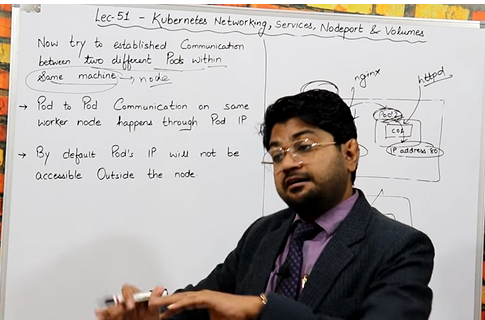 Lec-51 - Kubernetes Networking, Services, Nodeport & Volumes
Now try to established Communication
between two different Pods within
Same machine → node
→ Pod to Pod Communication on same
worker node happens through Pod IP
→ By default Pod's IP will not be
accessible Outside the node
nginx
httpd
Pod2
C01
IP address:80